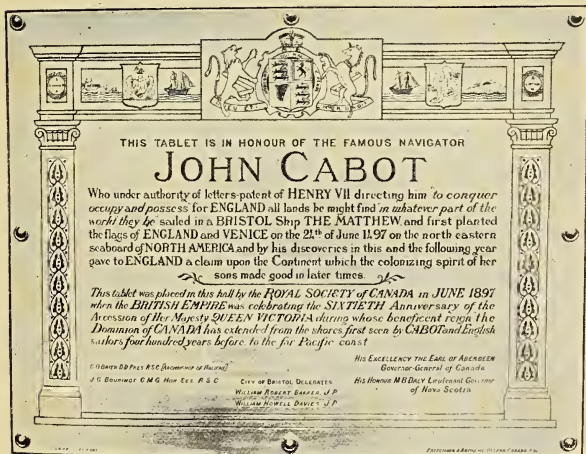 THIS TABLET IS IN HONOUR OF THE FAMOUS NAVIGATOR
JOHN CABOT
Who under authority of letters-patent of HENRY VII directing him "to conquer
occupy and possess" for ENGLAND all lands he might find "in whatever part of the
world they be" sailed in a BRISTOL Ship THE MATTHEW and first planted
the flags of ENGLAND and VENICE on the of June on the north eastern
seaboard of NORTH AMERICA and by his discoveries in this and the following year
gave to ENGLAND a claim upon the Continent which the colonizing spirit of her
sons made good in later times.
This tablet was placed in this hall by the ROYAL SOCIETY of CANADA in JUNE 1897
when the BRITISH EMPIRE was celebrating the SIXTIETH Anniversary of the
Accession of Her Majesty QUEEN VICTORIA during whose beneficent reign the
Dominion of CANADA has extended from the shores first seen by CABOT and English
sailors four hundred years before, to the far Pacific coast
HIS EXCELLENCY THE EARL OF ABERDEEN
Governor-General of Canada
C O'BRIEN D D PRES R S C [ARCHBISHOP OF HALIFAX]
J G BOURINOT C M G HON SEC R S C
CITY OF BRISTOL DELEGATES
WILLIAM ROBERT BARKER, J P
WILLIAM HOWELL DAVIES J P
HIS HONOUR M B DALY Lieutenant Governor
of Nova Scotia